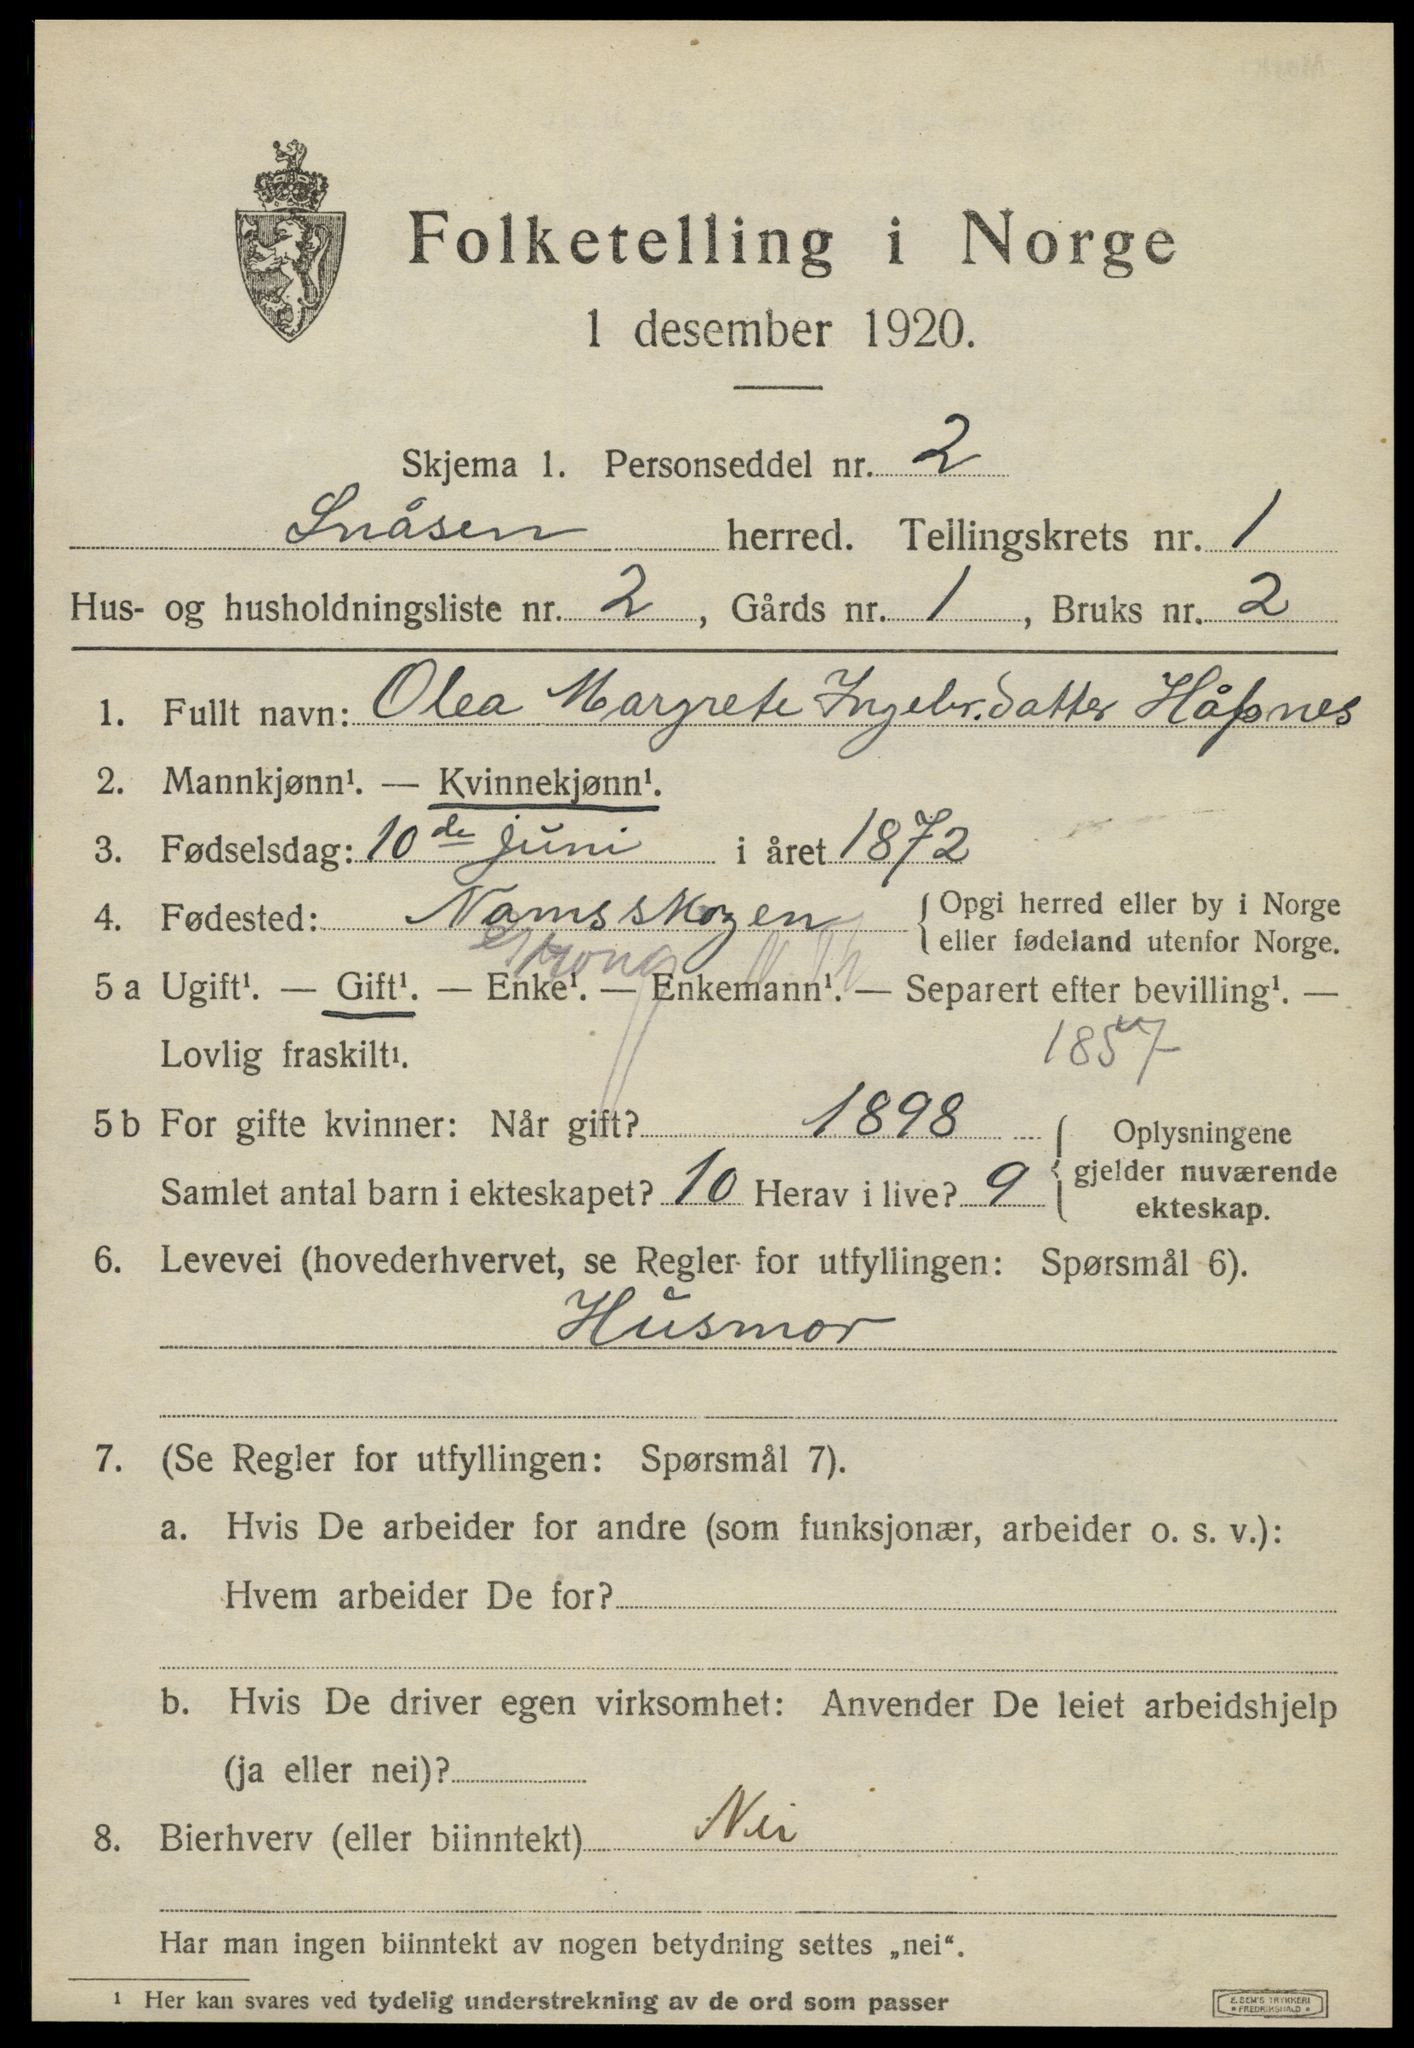 Folketelling i Norge
1 desember 1920.
Skjema 1. Personseddel nr. 2
Snåsen herred. Tellingskrets nr. 1
Hus- og husholdningsliste nr. 2, Gårds nr. 1, Bruks nr. 2
1. Fullt navn: Olea Margrete Ingebr.datter Håpnes
2. Mannkjønn¹. — Kvinnekjønn¹.
3. Fødselsdag: 10de juni i året 1872
4. Fødested: Namsskogen { Opgi herred eller by i Norge
eller fødeland utenfor Norge.
Grong
5 a Ugift¹. — Gift¹. — Enke¹. — Enkemann¹. — Separert efter bevilling¹. —
Lovlig fraskilt¹. 1857
5 b For gifte kvinner: Når gift? 1898 { Oplysningene
Samlet antal barn i ekteskapet? 10 Herav i live? 9 gjelder nuværende
ekteskap.
6. Levevei (hovederhvervet, se Regler for utfyllingen: Spørsmål 6).
Husmor
7. (Se Regler for utfyllingen: Spørsmål 7).
a. Hvis De arbeider for andre (som funksjonær, arbeider o. s. v.):
Hvem arbeider De for?
b. Hvis De driver egen virksomhet: Anvender De leiet arbeidshjelp
(ja eller nei)?
8. Bierhverv (eller biinntekt) Nei
Har man ingen biinntekt av nogen betydning settes „nei“.
¹ Her kan svares ved tydelig understrekning av de ord som passer
E. SEM'S TRYKKERI
* FREDRIKSHALD *